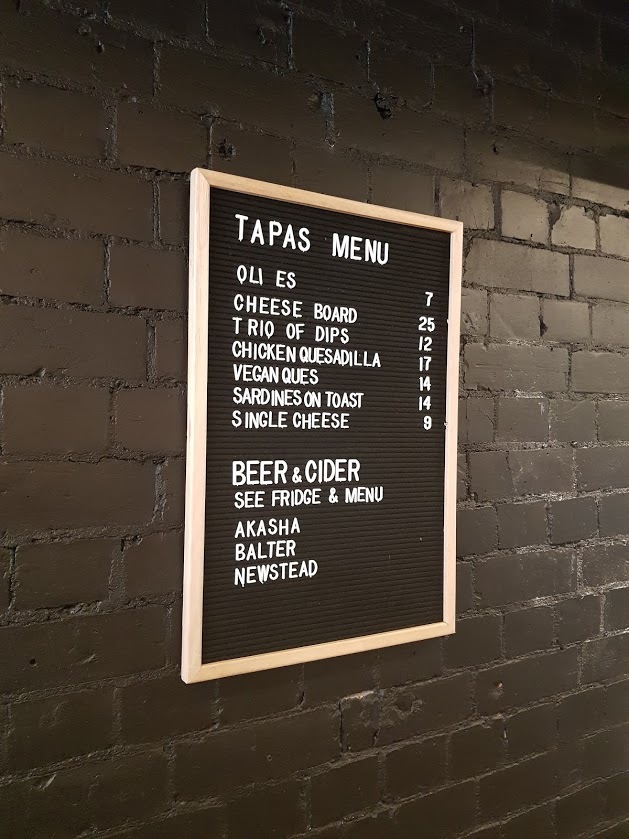 TAPAS MENU
OLI ES 7
CHEESE BOARD 25
TRIO OF DIPS 12
CHICKEN QUESADILLA 17
VEGAN QUES 14
SARDINES ON TOAST 14
SINGLE CHEESE 9
BEER & CIDER
SEE FRIDGE & MENU
AKASHA
BALTER
NEWSTEAD